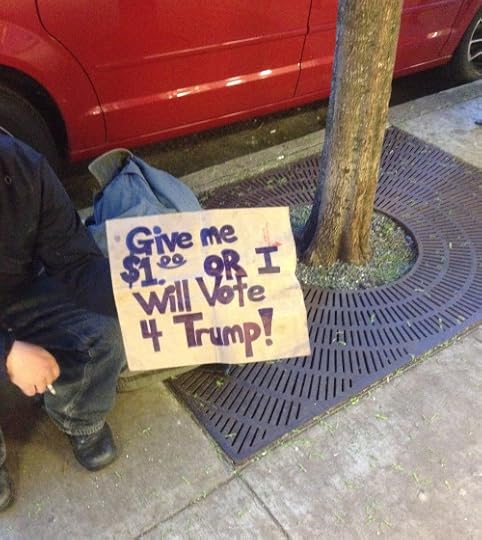 Give me
$1.00 OR I
Will Vote
4 Trump!